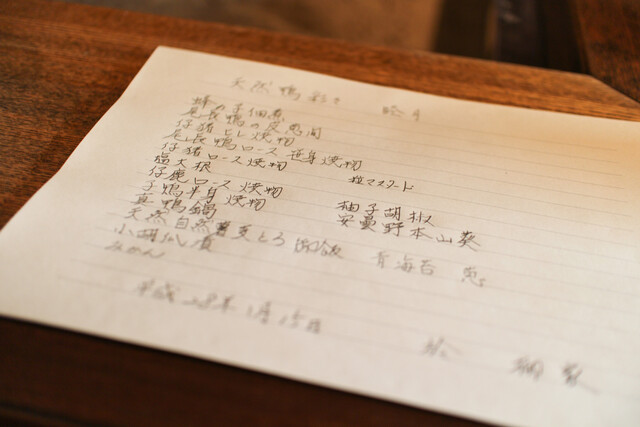 天然鴨彩々 睦月
蜂の子佃煮
尾長鴨の
仔猪ヒレ焼物
尾長鴨ロース 笹身焼物
仔猪ロース焼物 粒マスタード
塩大根
仔鹿ロース焼物 柚子胡椒
子鴨半身焼物 安曇野本山葵
真鴨鍋
天然自然薯麦とろ御飯 青海苔 葱
小胡瓜 漬
みかん
平成28年1月15日 於